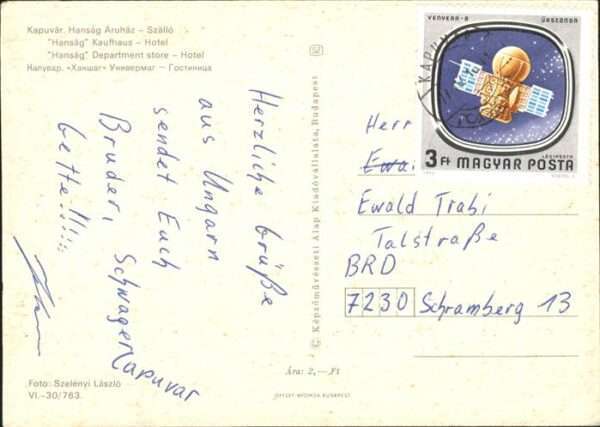 Kapuvár. Hanság Áruház – Szálló
"Hanság" Kaufhaus – Hotel
"Hanság" Department store – Hotel
Капувар. «Ханшаг» Универмаг – Гостиница
Herzliche Grüße
aus Ungarn
sendet Euch
Bruder, Schwager
bette!!!!!
Kapuvar
Foto: Szelényi László
VI.–30/763.
© Képzőművészeti Alap Kiadóvállalata, Budapest
Ára: 2,—Ft
OFFSET-NYOMDA BUDAPEST
VENYERA-9 ŰRSZONDA
KAPUV
3 Ft MAGYAR POSTA
LÉGIPOSTA
Herr
Ewa
Ewald Trabi
Talstraße
BRD
7230 Schramberg 13